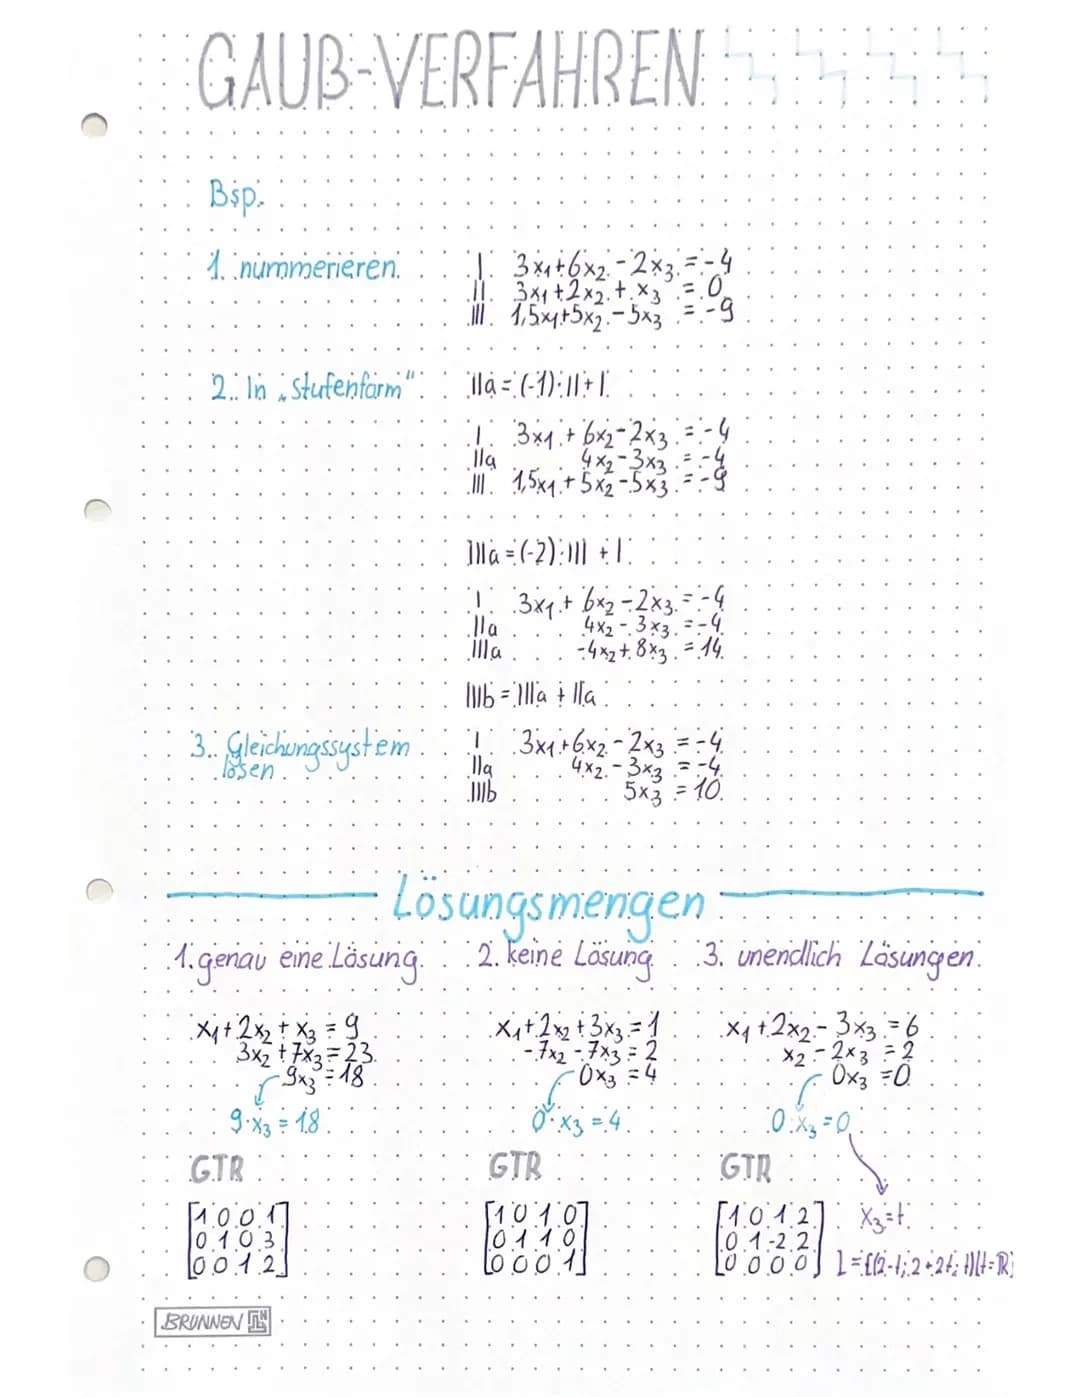 GAUß-VERFAHREN
Bsp.
1. nummerieren
I 3x₁+6x₂-2x₃=-4
II 3x₁+2x₂+x₃=0
III 1,5x₁+5x₂-5x₃=-9
2. In „Stufenform"
IIa=(-1)·II+I
I 3x₁+6x₂-2x₃=-4
IIa 4x₂-3x₃=-4
III 1,5x₁+5x₂-5x₃=-9
IIIa=(-2)·III+I
I 3x₁+6x₂-2x₃=-4
IIa 4x₂-3x₃=-4
IIIa -4x₂+8x₃=14
IIIb=IIIa+IIa
3. Gleichungssystem
lösen
I 3x₁+6x₂-2x₃=-4
IIa 4x₂-3x₃=-4
IIIb 5x₃=10
Lösungsmengen
1. genau eine Lösung
x₁+2x₂+x₃=9
3x₂+7x₃=23
9x₃=18
9·x₃=18
GTR
[1 0 0 1
0 1 0 3
0 0 1 2]
2. keine Lösung
x₁+2x₂+3x₃=1
-7x₂-7x₃=2
0x₃=4
0·x₃=4
GTR
[1 0 1 0
0 1 1 0
0 0 0 1]
3. unendlich Lösungen
x₁+2x₂-3x₃=6
x₂-2x₃=2
0x₃=0
0·x₃=0
GTR
[1 0 1 2
0 1 -2 2
0 0 0 0]
x₃=t
L={(2-t; 2+2t; t)|(t=ℝ}
BRUNNEN